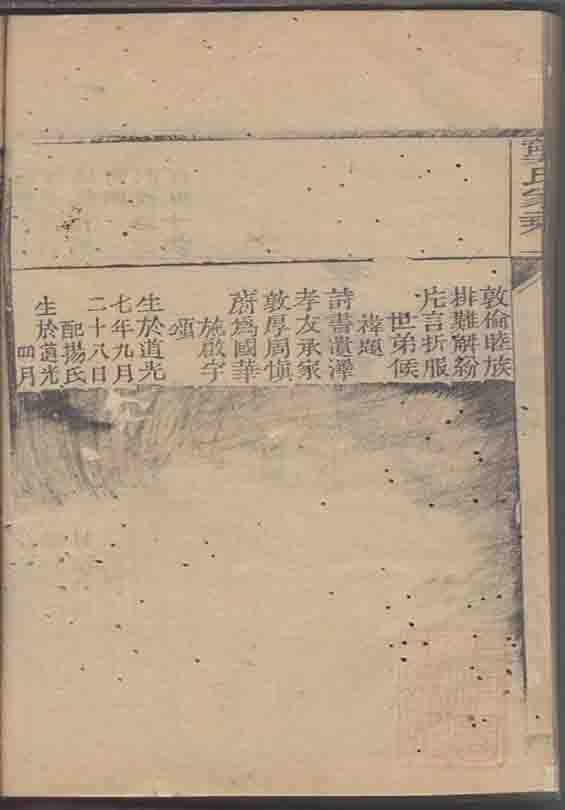 氏家乘
敦倫睦族
排難解紛
片言折服
世弟侯
禕題
詩書遺澤
孝友承家
敦厚周慎
蔚為國華
施啟宇
頌
生於道光
七年九月
二十八日
配揚氏
生於道光
四月